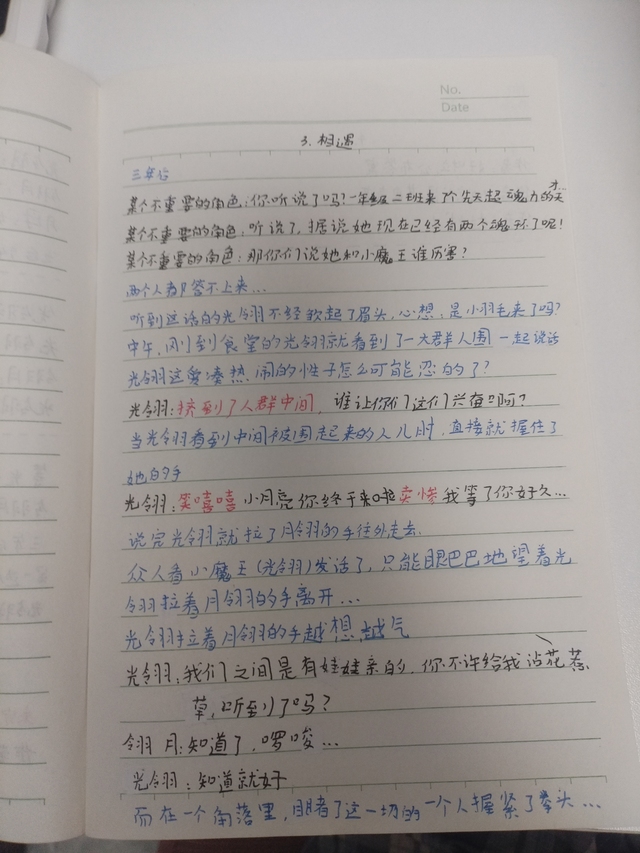 No.
Date
3.相遇
三年后
某个不重要的角色:你听说了吗?一年级二班来个先天超魂力的天才…
某个不重要的角色:听说了,据说她现在已经有两个魂环了呢!
某个不重要的角色:那你们说她和小魔王谁厉害?
两个人都答不上来…
听到这话的光翎不经皱起了眉头,心想,是小羽毛来了吗?
中午,刚到食堂的光翎就看到了一大群人围一起说话
光翎这爱凑热闹的性子怎么可能忍的了?
光翎:挤到了人群中间,谁让你们这们兴奋啊?
当光翎看到中间被围起来的人儿时,直接就握住了
她的手
光翎:笑嘻嘻 小月亮你终于来啦 卖惨 我等了你好久…
说完光翎就拉了月翎的手往外走去
众人看小魔王(光翎)发话了,只能眼巴巴地望着光
翎拉着月翎的手离开…
光翎拉着月翎的手越想越气
光翎:我们之间是有娃娃亲的,你不许给我沾花惹
草,听到了吗?
翎月:知道了,啰唆…
光翎:知道就好
而在一个角落里,目睹了这一切的一个人握紧了拳头…